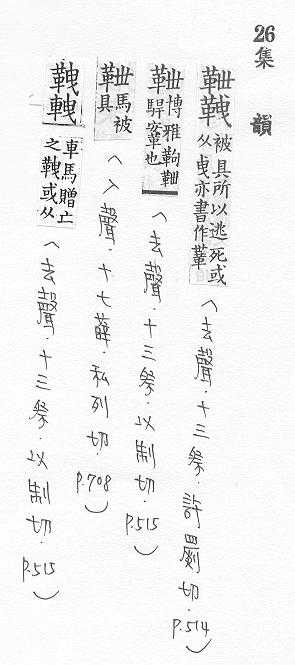 26集韻
䩡靾 被具所以逃死或从曳亦書作 （去聲．十三祭．許罽切．P.514）
䩡 博雅 䩡 也 （去聲．十三祭．以制切．P.515）
䩡 馬被具 （入聲．十七薛．私列切．P.708）
靾 車馬贈亡之靾或从 （去聲．十三祭．以制切．P.515）